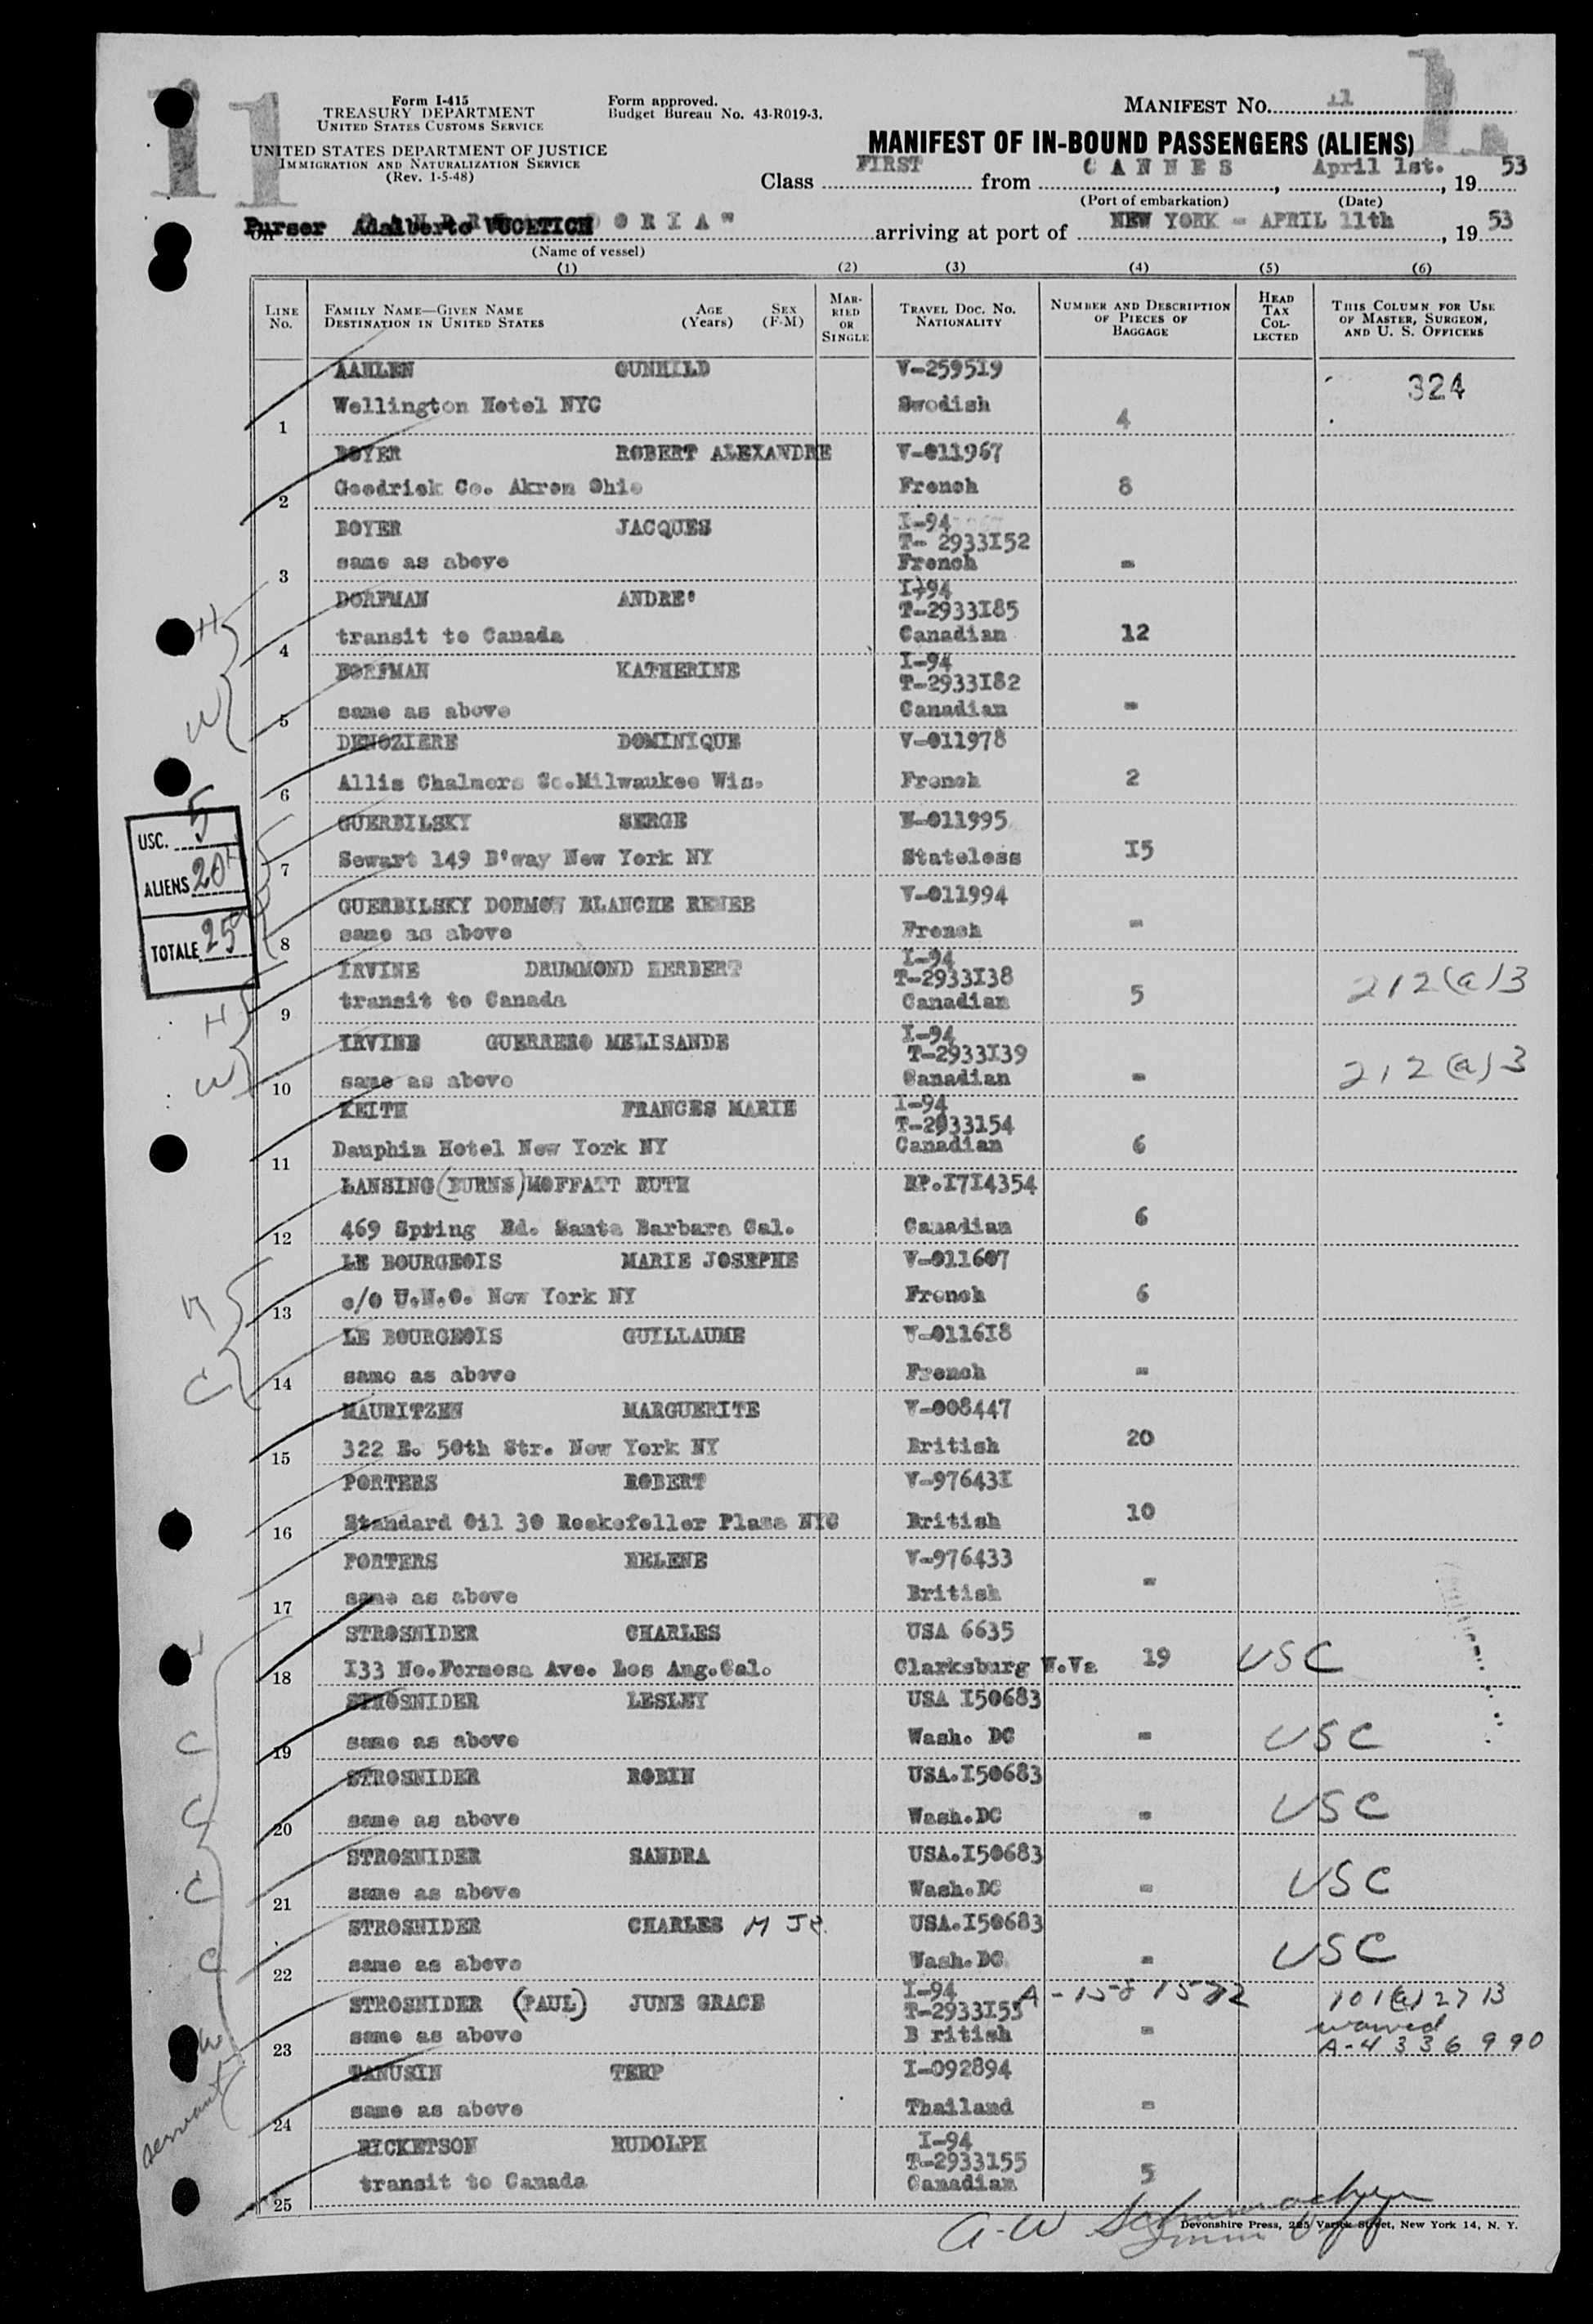 11
Form I-415
TREASURY DEPARTMENT
UNITED STATES CUSTOMS SERVICE
UNITED STATES DEPARTMENT OF JUSTICE
IMMIGRATION AND NATURALIZATION SERVICE
(Rev. 1-5-48)
Form approved.
Budget Bureau No. 43-R019-3.
MANIFEST NO. 11
MANIFEST OF IN-BOUND PASSENGERS (ALIENS)
Class FIRST from CANNES, April 1st., 1953
(Port of embarkation) (Date)
Purser Adalberto VUCETICH DORIA"
arriving at port of NEW YORK - APRIL 11th, 1953
(Name of vessel)
(1) (2) (3) (4) (5) (6)
LINE No. FAMILY NAME—GIVEN NAME DESTINATION IN UNITED STATES AGE (Years) SEX (F-M) MARRIED OR SINGLE TRAVEL DOC. NO. NATIONALITY NUMBER AND DESCRIPTION OF PIECES OF BAGGAGE HEAD TAX COLLECTED THIS COLUMN FOR USE OF MASTER, SURGEON, AND U. S. OFFICERS
AAHLEN GUNHILD V-259519 324
1 Wellington Hotel NYC Swedish 4
BOYER ROBERT ALEXANDRE V-011967
2 Goodrick Co. Akron Ohio French 8
BOYER JACQUES I-94 T- 2933152
3 same as above French -
DORFMAN ANDRE' I-94 T-2933185
4 transit to Canada Canadian 12
DORFMAN KATHERINE I-94 T-2933182
5 same as above Canadian -
DENOZIERE DOMINIQUE V-011978
6 Allis Chalmers Co.Milwaukee Wis. French 2
GUERBILSKY SERGE V-011995
7 Sewart 149 B'way New York NY Stateless 15
GUERBILSKY DORMOY BLANCHE RENEE V-011994
8 same as above French -
IRVINE DRUMMOND HERBERT I-94 T-2933138
9 transit to Canada Canadian 5 212(a)3
IRVINE GUERRERO MELISANDE I-94 T-2933139
10 same as above Canadian - 212(a)3
KEITH FRANCES MARIE I-94 T-2933154
11 Dauphin Hotel New York NY Canadian 6
LANSING (BURNS) MOFFATT RUTH RP.1714354
12 469 Spring Rd. Santa Barbara Cal. Canadian 6
LE BOURGEOIS MARIE JOSEPHE V-011607
13 c/o U.N.O. New York NY French 6
LE BOURGEOIS GUILLAUME V-011618
14 same as above French -
MAURITZEN MARGUERITE V-008447
15 322 E. 50th Str. New York NY British 20
PORTERS ROBERT V-976431
16 Standard Oil 30 Rockefeller Plaza NYC British 10
PORTERS HELENE V-976433
17 same as above British -
STROSNIDER CHARLES USA 6635
18 133 No.Formosa Ave. Los Ang.Cal. Clarksburg W.Va 19 USC
STROSNIDER LESLEY USA 150683
19 same as above Wash. DC - USC
STROSNIDER ROBIN USA.150683
20 same as above Wash.DC - USC
STROSNIDER SANDRA USA.150683
21 same as above Wash.DC - USC
STROSNIDER CHARLES M JR. USA.150683
22 same as above Wash.DC - USC
STROSNIDER (PAUL) JUNE GRACE I-94 T-2933153 101(a)27B
23 same as above British - waived A-4336990
TANUSIN TERP I-092894
24 same as above Thailand -
RICKETSON RUDOLPH I-94 T-2933155
25 transit to Canada Canadian 5
H
W
USC. 5
ALIENS 20
TOTALE 25
H
W
M
C
C
C
C
C
W
servant
A-W Schumacher
Devonshire Press, 225 Varick Street, New York 14, N. Y.